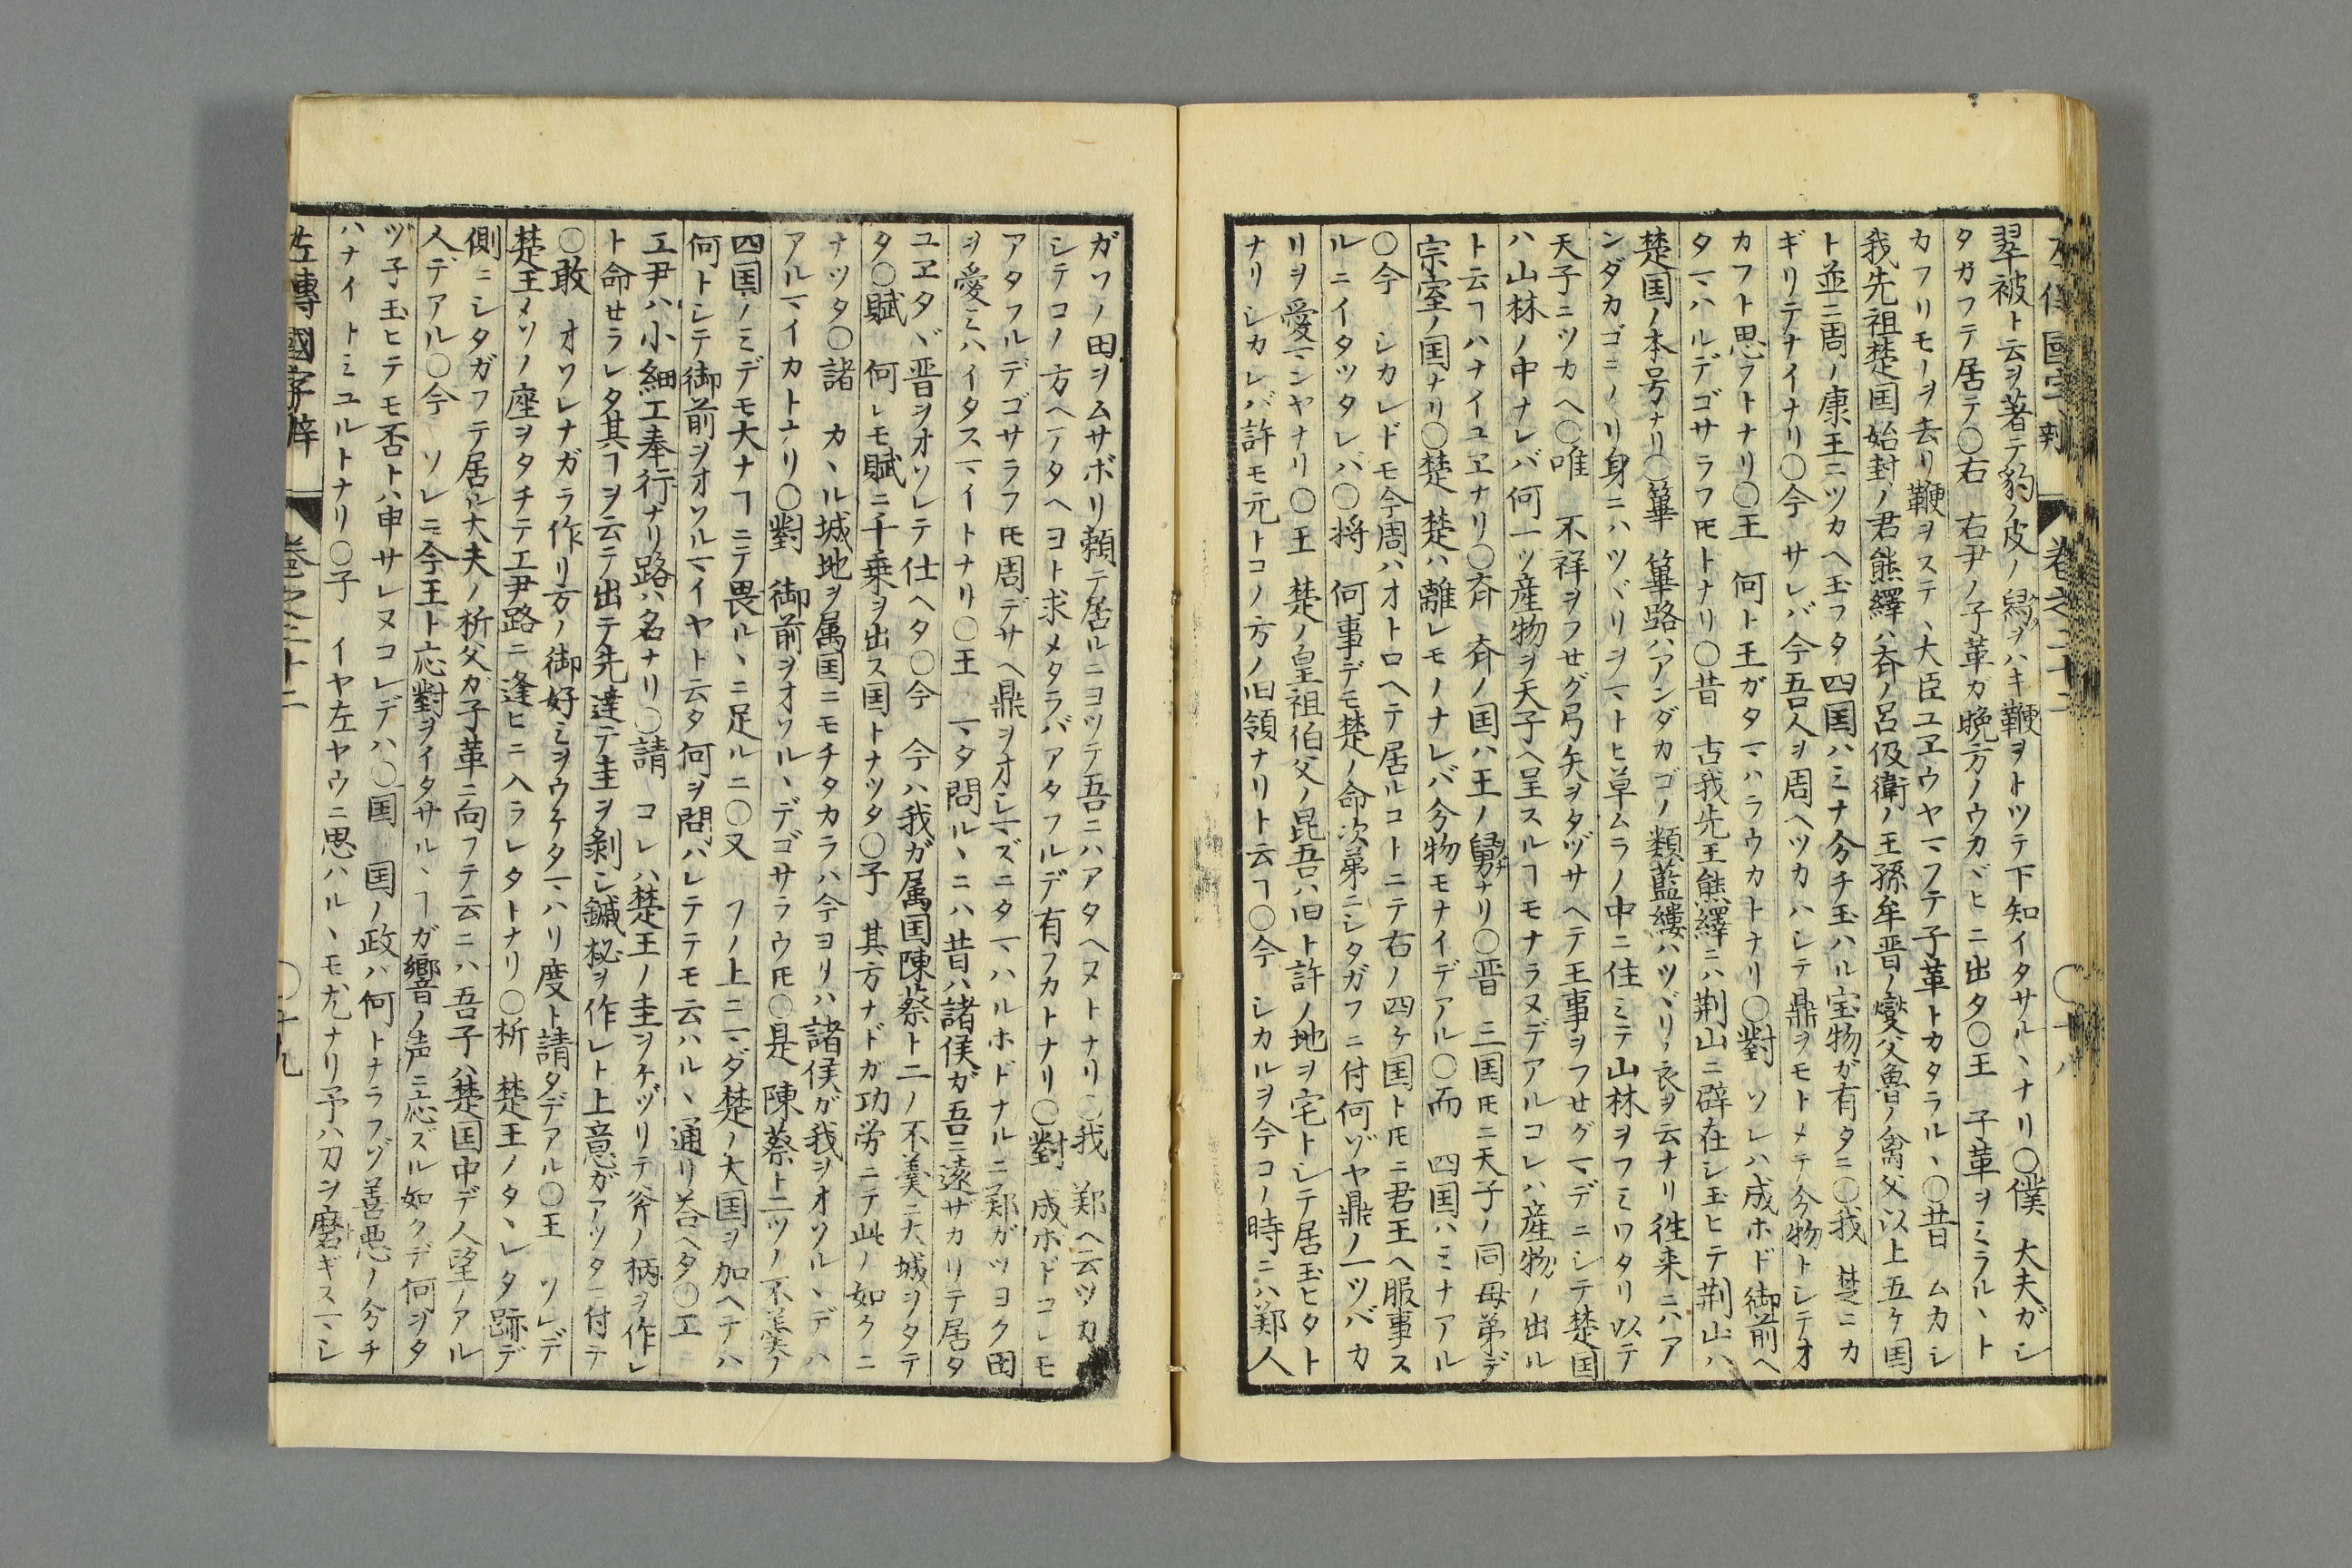 左傳國字辯 卷之二十二 〇十八
翠被ト云ヲ著テ豹ノ皮ノ舄ヲハキ鞭ヲトツテ下知イタサル丶ナリ〇僕 大夫ガシ
タガフテ居テ〇右 右尹ノ子革ガ晩方ノウカヾヒニ出タ〇王 子革ヲミラル丶ト
カフリモノヲ去リ鞭ヲステ丶大臣ユヱウヤマフテ子革トカタラル丶〇昔 ムカシ
我先祖楚国始封ノ君熊繹ハ斉ノ呂伋衛ノ王孫牟晋ノ燮父魯ノ禽父以上五ケ国
ト並ニ周ノ康王ニツカヘ玉フタ四国ハミナ分チ玉ハル宝物ガ有タニ〇我 楚ニカ
ギリテナイナリ〇今 サレバ今吾人ヲ周ヘツカハシテ鼎ヲモトメテ分物トシテオ
カフト思フトナリ〇王 何ト王ガタマハラウカトナリ〇對 ソレハ成ホド御前ヘ
タマハルデゴサラフ𪜈トナリ〇昔 古我先王熊繹ニハ荆山ニ辟在シ玉ヒテ荆山ハ
楚国ノ本号ナリ〇篳 篳路ハアンダカゴノ類藍縷ハツヾリノ衣ヲ云ナリ徃来ニハア
ンダカゴニノリ身ニハツヾリヲマトヒ草ムラノ中ニ住ミテ山林ヲフミワタリ以テ
天子ニツカヘ〇唯 不祥ヲフせグ弓矢ヲタヅサヘテ王事ヲフせグマデニシテ楚国
ハ山林ノ中ナレバ何一ツ産物ヲ天子ヘ呈スルヿモナラヌデアルコレハ産物ノ出ル
ト云ヿハナイユヱナリ〇斉 斉ノ国ハ王ノ舅ナリ〇晋 三国𪜈ニ天子ノ同母弟デ
宗室ノ国ナリ〇楚 楚ハ離レモノナレバ分物モナイデアル〇而 四国ハミナアル
〇今 シカレドモ今周ハオトロヘテ居ルコトニテ右ノ四ケ国ト𪜈ニ君王ヘ服事ス
ルニイタツタレバ〇将 何事デモ楚ノ命次第ニシタガフニ付何ゾヤ鼎ノ一ツバカ
リヲ愛マンヤナリ〇王 楚ノ皇祖伯父ノ昆吾ハ旧ト許ノ地ヲ宅トシテ居玉ヒタト
ナリシカレバ許モ元トコノ方ノ旧領ナリト云ヿ〇今 シカルヲ今コノ時ニハ鄭人
ガソノ田ヲムサボリ頼テ居ルニヨツテ吾ニハアタヘヌトナリ〇我 鄭ヘ云ツカ
シテコノ方ヘアタヘヨト求メタラバアタフルデ有フカトナリ〇對 成ホドコレモ
アタフルデゴサラフ𪜈周デサヘ鼎ヲオシマズニタマハルホドナルニ鄭ガツヨク田
ヲ愛ミハイタスマイトナリ〇王 マタ問ル丶ニハ昔ハ諸侯ガ吾ニ遠ザカリテ居タ
ユヱタヾ晋ヲオソレテ仕ヘタ〇今 今ハ我ガ属国陳蔡ト二ノ不羹ニ大城ヲタテ
タ〇賦 何レモ賦ニ千乗ヲ出ス国トナツタ〇子 其方ナドガ功労ニテ此ノ如クニ
ナツタ〇諸 カ丶ル城地ヲ属国ニモチタカラハ今ヨリハ諸侯ガ我ヲオソル丶デハ
アルマイカトナリ〇對 御前ヲオソル丶デゴサラウ𪜈〇是 陳蔡ト二ツノ不羹ノ
四国ノミデモ大ナヿニテ畏ル丶ニ足ルニ〇又 フノ上ニマダ楚ノ大国ヲ加ヘテハ
何トシテ御前ヲオソルマイヤト云タ何ヲ問ハレテテモ云ハル丶通リ荅ヘタ〇工
工尹ハ小細工奉行ナリ路ハ名ナリ〇請 コレハ楚王ノ圭ヲケヅリテ斧ノ柄ヲ作レ
ト命せラレタ其ヿヲ云テ出テ先達テ圭ヲ剝シ鏚柲ヲ作レト上意ガアツタニ付テ
〇敢 オソレナガラ作リ方ノ御好ミヲウケタマハリ度ト請タデアル〇王 ソレデ
楚王メソノ座ヲタチテ工尹路ニ逢ヒニ入ラレタトナリ〇析 楚王ノタ丶レタ跡デ
側ニシタガフテ居ル大夫ノ析父ガ子革ニ向フテ云ニハ吾子ハ楚国中デ人望ノアル
人デアル〇今 ソレニ今王ト応對ヲイタサル丶ヿガ響ノ声ニ応ズル如クデ何ヲタ
ヅ子玉ヒテモ否トハ申サレヌコレデハ〇国 国ノ政ハ何トナラフゾ善悪ノ分チ
ハナイトミユルトナリ〇子 イヤ左ヤウニ思ハル丶モ尤ナリ予ハ刀ヲ磨ギスマシ
左傳國字辯 卷之二十二 〇十九